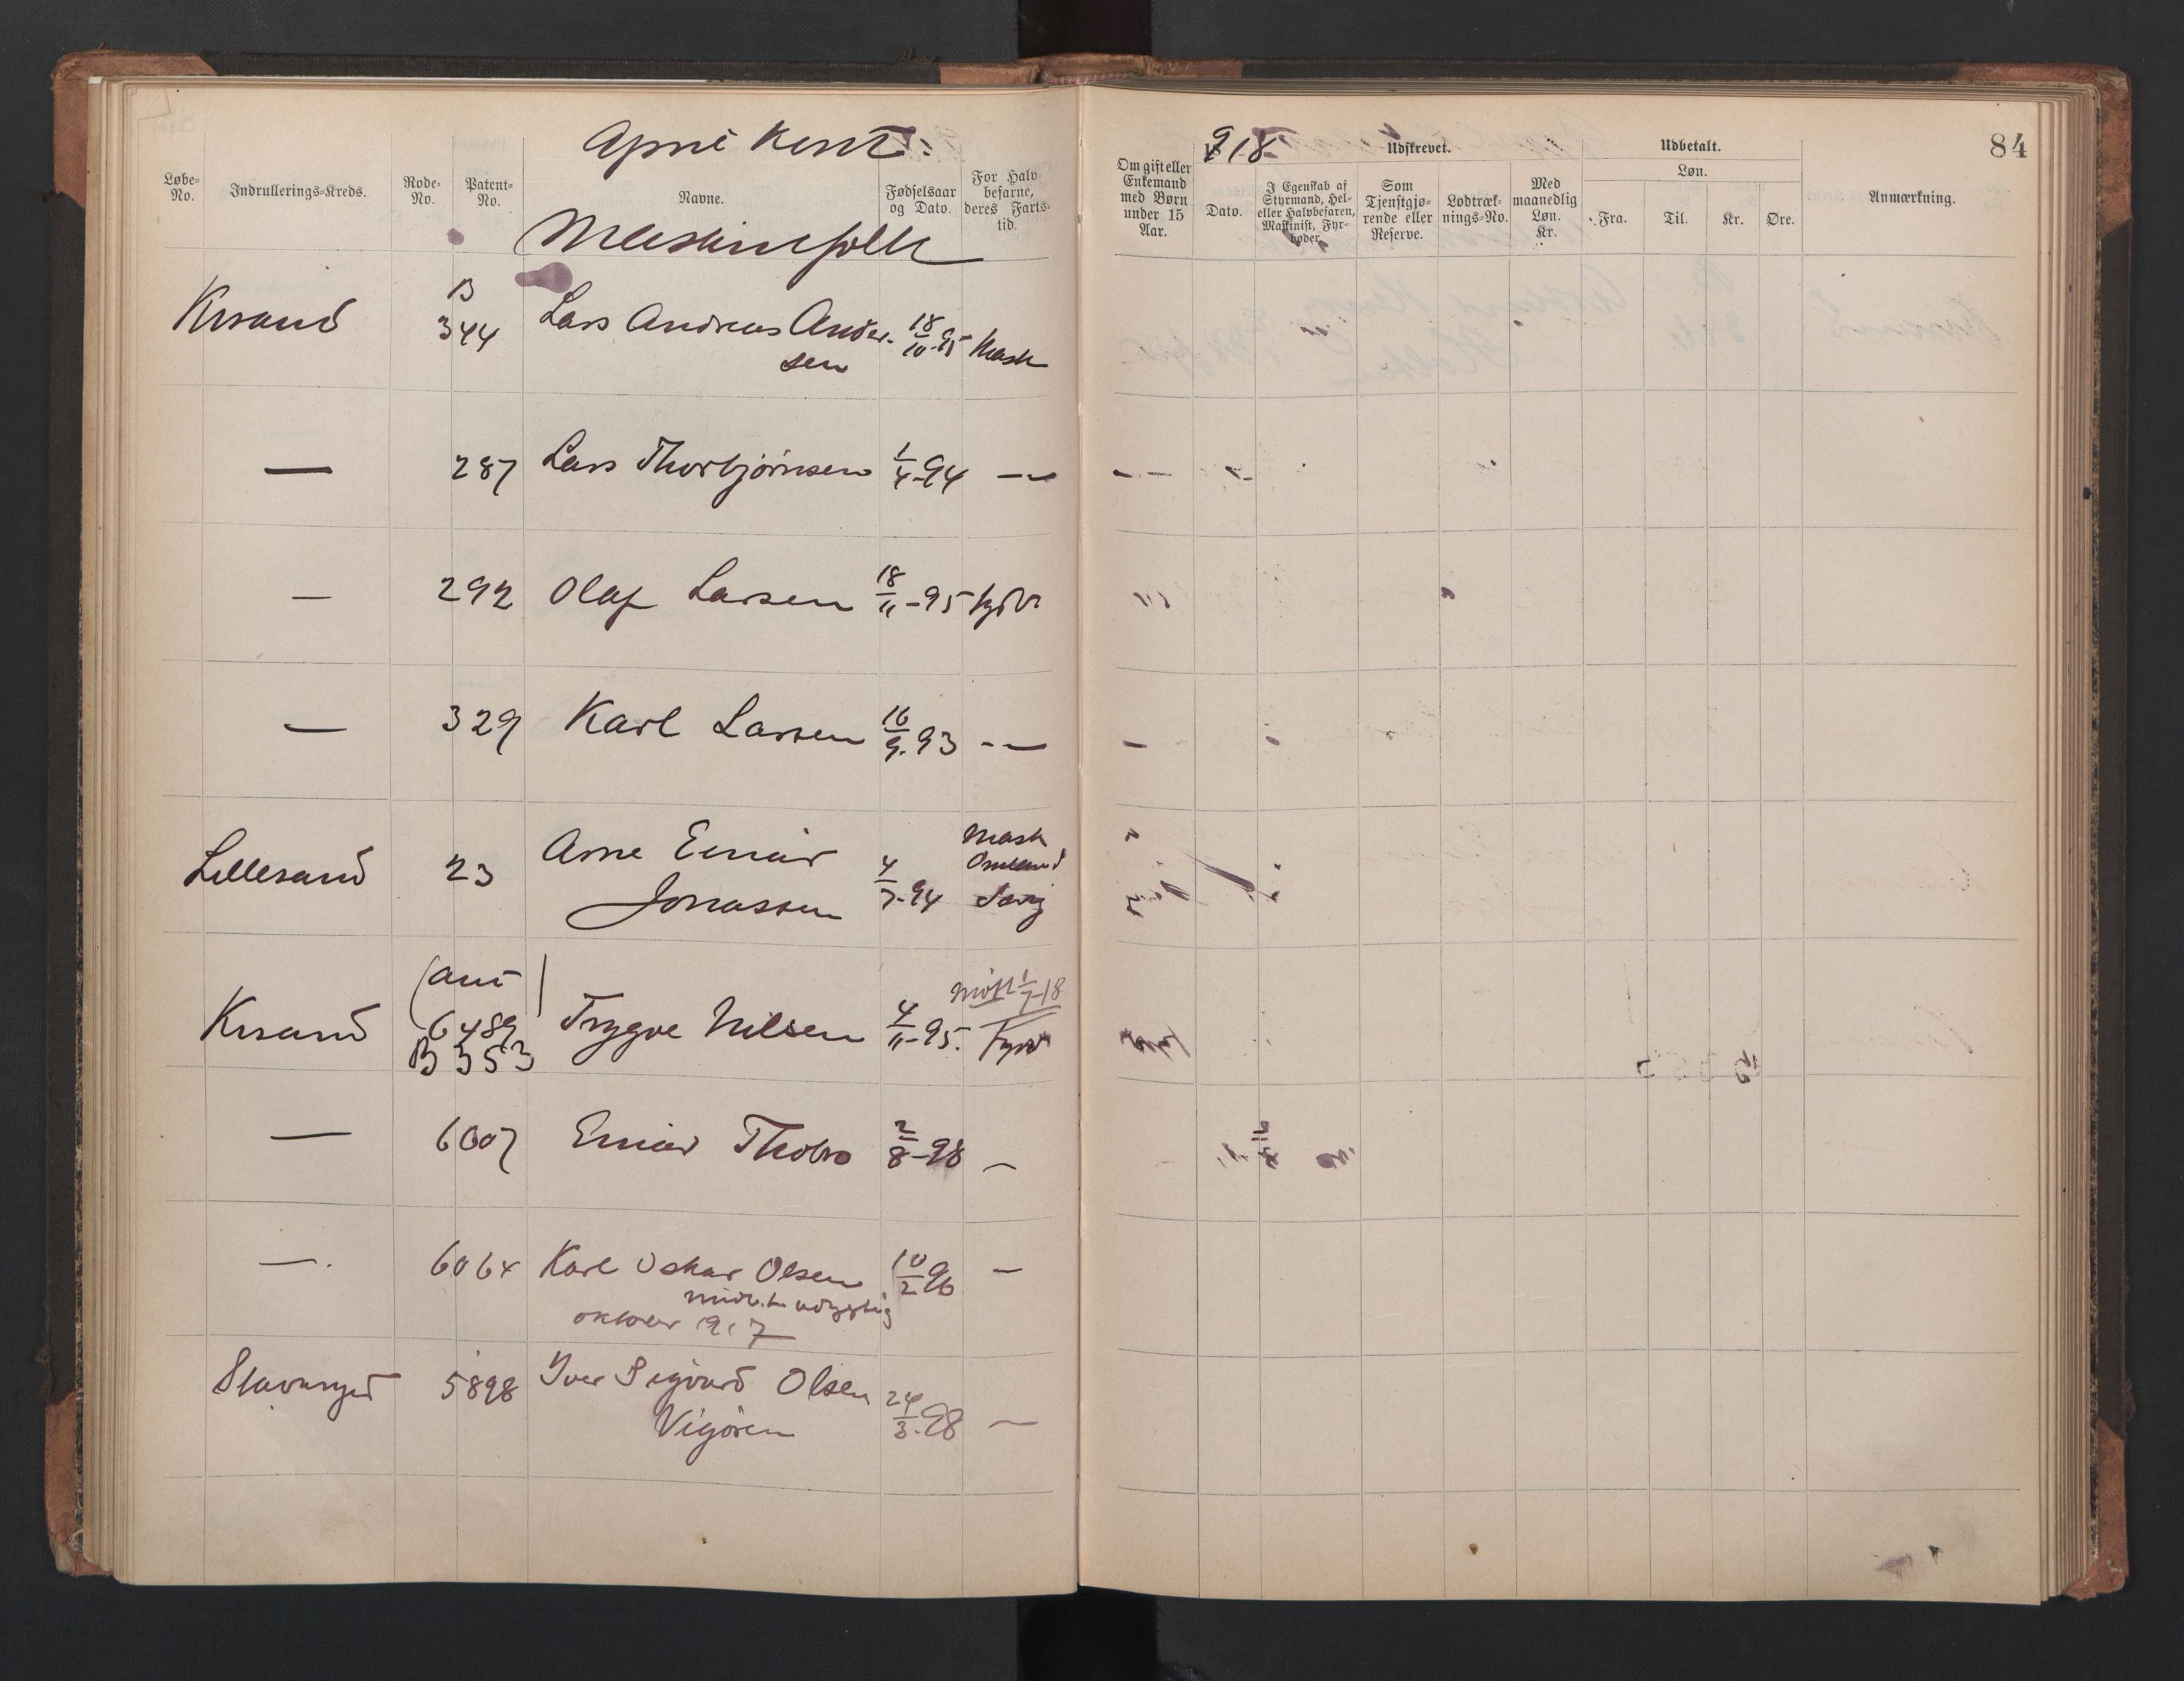 918
84
Udskrevet.
Udbetalt.
Løbe-No.
Indrullerings-Kreds.
Rode-No.
Patent-No.
Navne.
Fødselsaar og Dato.
For Halvbefarne, deres Fartstid.
Om gift eller Enkemand med Børn under 15 Aar.
Dato.
I Egenskab af Styrmand, Hel- eller Halvbefaren, Maskinist, Fyrbøder.
Som Tjenstgjørende eller Reserve.
Lodtræknings-No.
Med maanedlig Løn. Kr.
Løn.
Fra.
Til.
Kr.
Øre.
Anmærkning.
Maskinfolk
Krsand B 344 Lars Andreas Ander-
sen 18/10-95 Mask
— 287 Lars Thorbjørnsen 1/4-94 —
— 292 Olaf Larsen 18/11-95 fyrb
— 329 Karl Larsen 16/9-93 —
Lillesand 23 Arne Einar
Jonassen 4/7-94 Mask
Krsand 6489 Trygve Nilsen 4/11-95. Fyrb
B 353
— 6007 Einar 2/8-98 —
— 6064 Karl Oskar Olsen 10/2 96 —
1917
Stavanger 5898 Iver Sigvard Olsen
Vigören 24/3-98 —